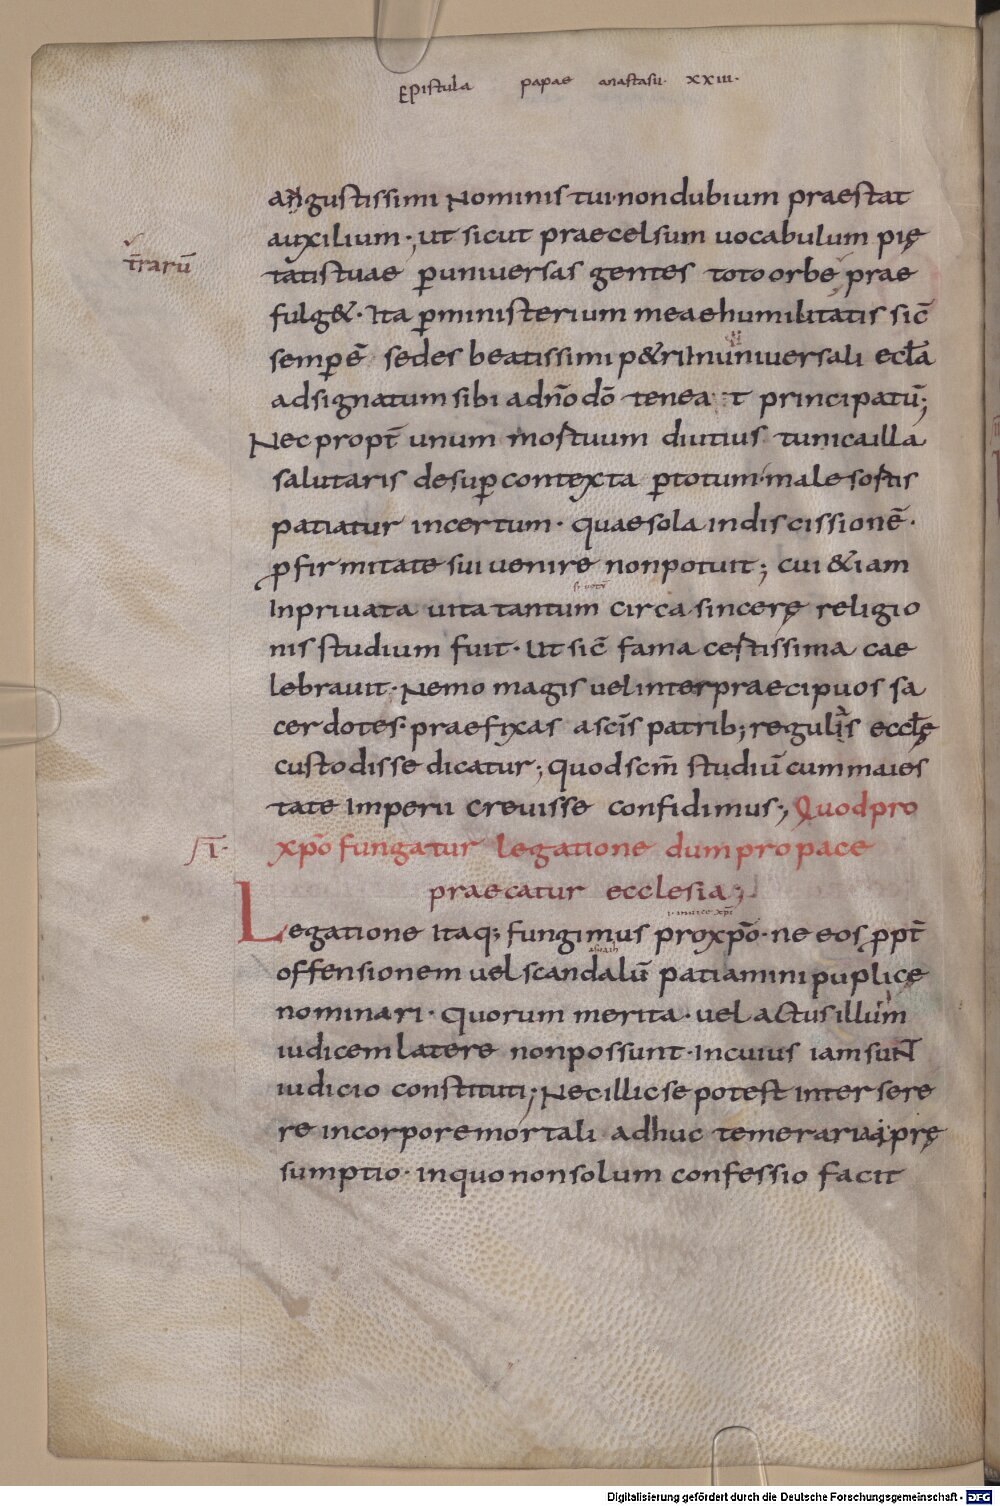 Epistula papae anastasii· xxiii·
angustissimi Nominis tui·non dubium praestat
auxilium·, ut sicut praecelsum uocabulum pię
tr̄arū
tatis tuae ꝑ uniuersas gentes toto orbe prae
fulg&· Ita ꝑ ministerium meae humilitatis sic̄
semꝑ ē sedes beatissimi p&ri In uniuersali eccl̄a
adsignatum sibi a dn̄o dō tenea t principatū;
Nec propt̄ unum mortuum diutius tunica illa
salutaris desuꝑ contexta ꝑ totum·male sortis
patiatur incertum· quae sola in discissionē·
ꝓ firmitate sui uenire non potuit; cui &iam
Inpriuata uita tantum circa sincerę religio
nis studium fuit· Ut sic̄ fama certissima cae
lebrauit·Nemo magis uel inter praecipuos sa
cerdotes·praefixas a sc̄is patrib; regulis eccl̄ę
custodisse dicatur; Quod sc̄m studiū cum maies
tate Imperii creuisse confidimus; Quod pro
xp̄o fungatur legatione dum pro pace
praecatur ecclesia;
Legatione Itaq; fungimus pro xp̄o·ne eos ꝓpt̄
offensionem uel scandalū patiamini puplice
nominari· quorum merita·uel actus illum
iudicem latere non possunt·In cuius iam sunt
iudicio constituti; Nec illic se potest inter sere
re in corpore mortali adhuc temeraria pre̜
sumptio· in quo non solum confessio facit
Digitalisierung gefördert durch die Deutsche Forschungsgemeinschaft - DFG